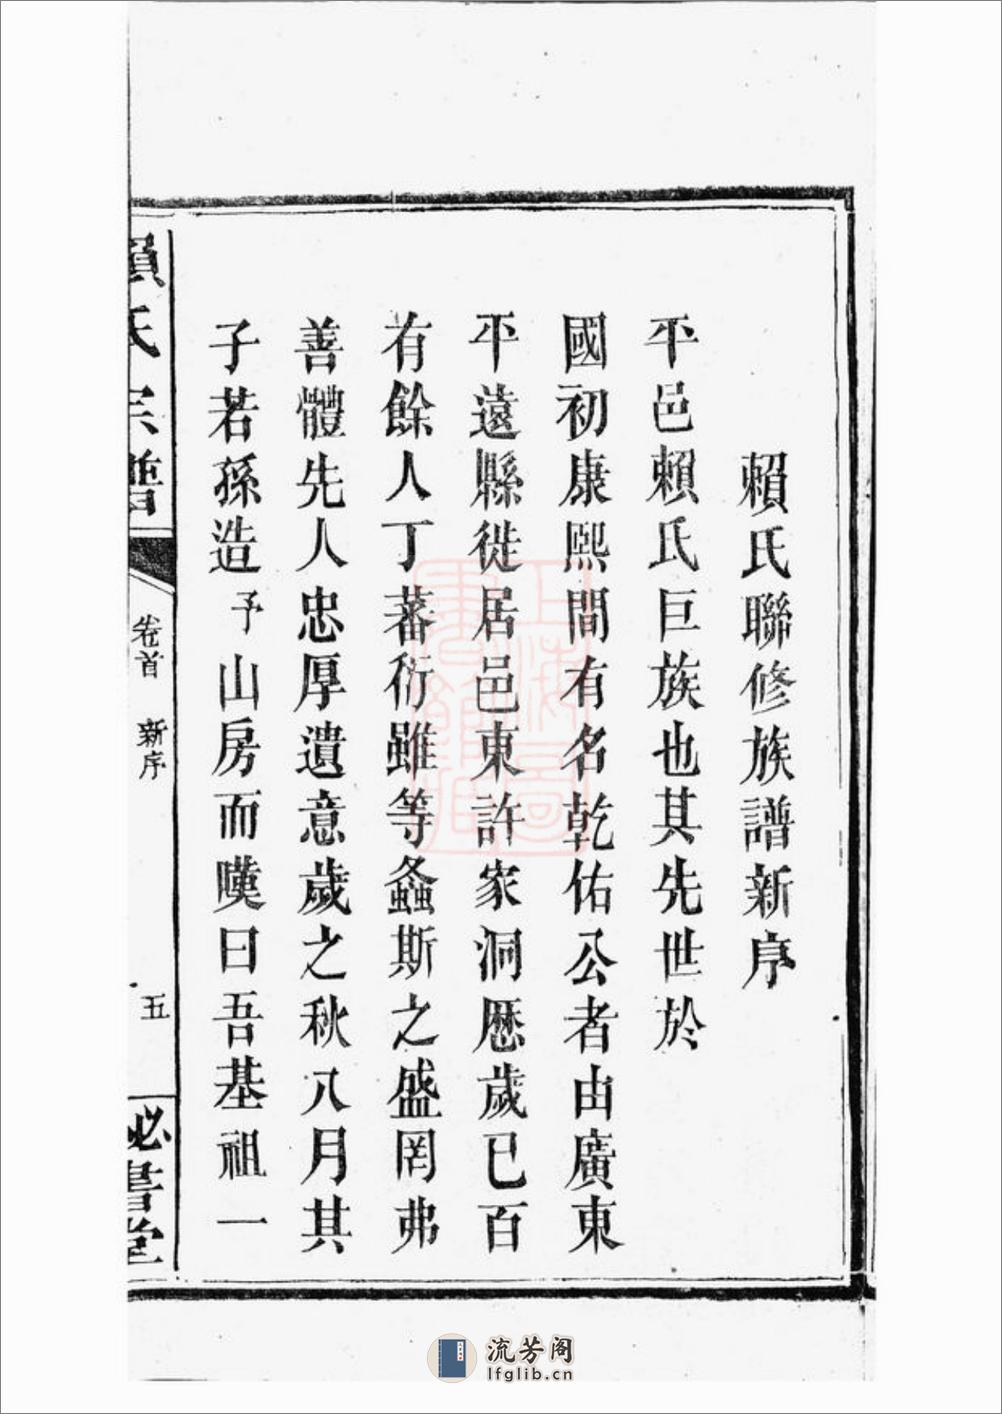 賴氏聯修族譜新序
平邑賴氏巨族也其先世於
國初康熙間有名乾佑公者由廣東
平遠縣徙居邑東許家洞歷歲已百
有餘人丁蕃衍雖等螽斯之盛罔弗
善體先人忠厚遺意歲之秋八月其
子若孫造予山房而嘆曰吾基祖一
賴氏宗譜
卷首 新序
五
必書堂
上海圖書館藏
流芳阁
lfglib.cn